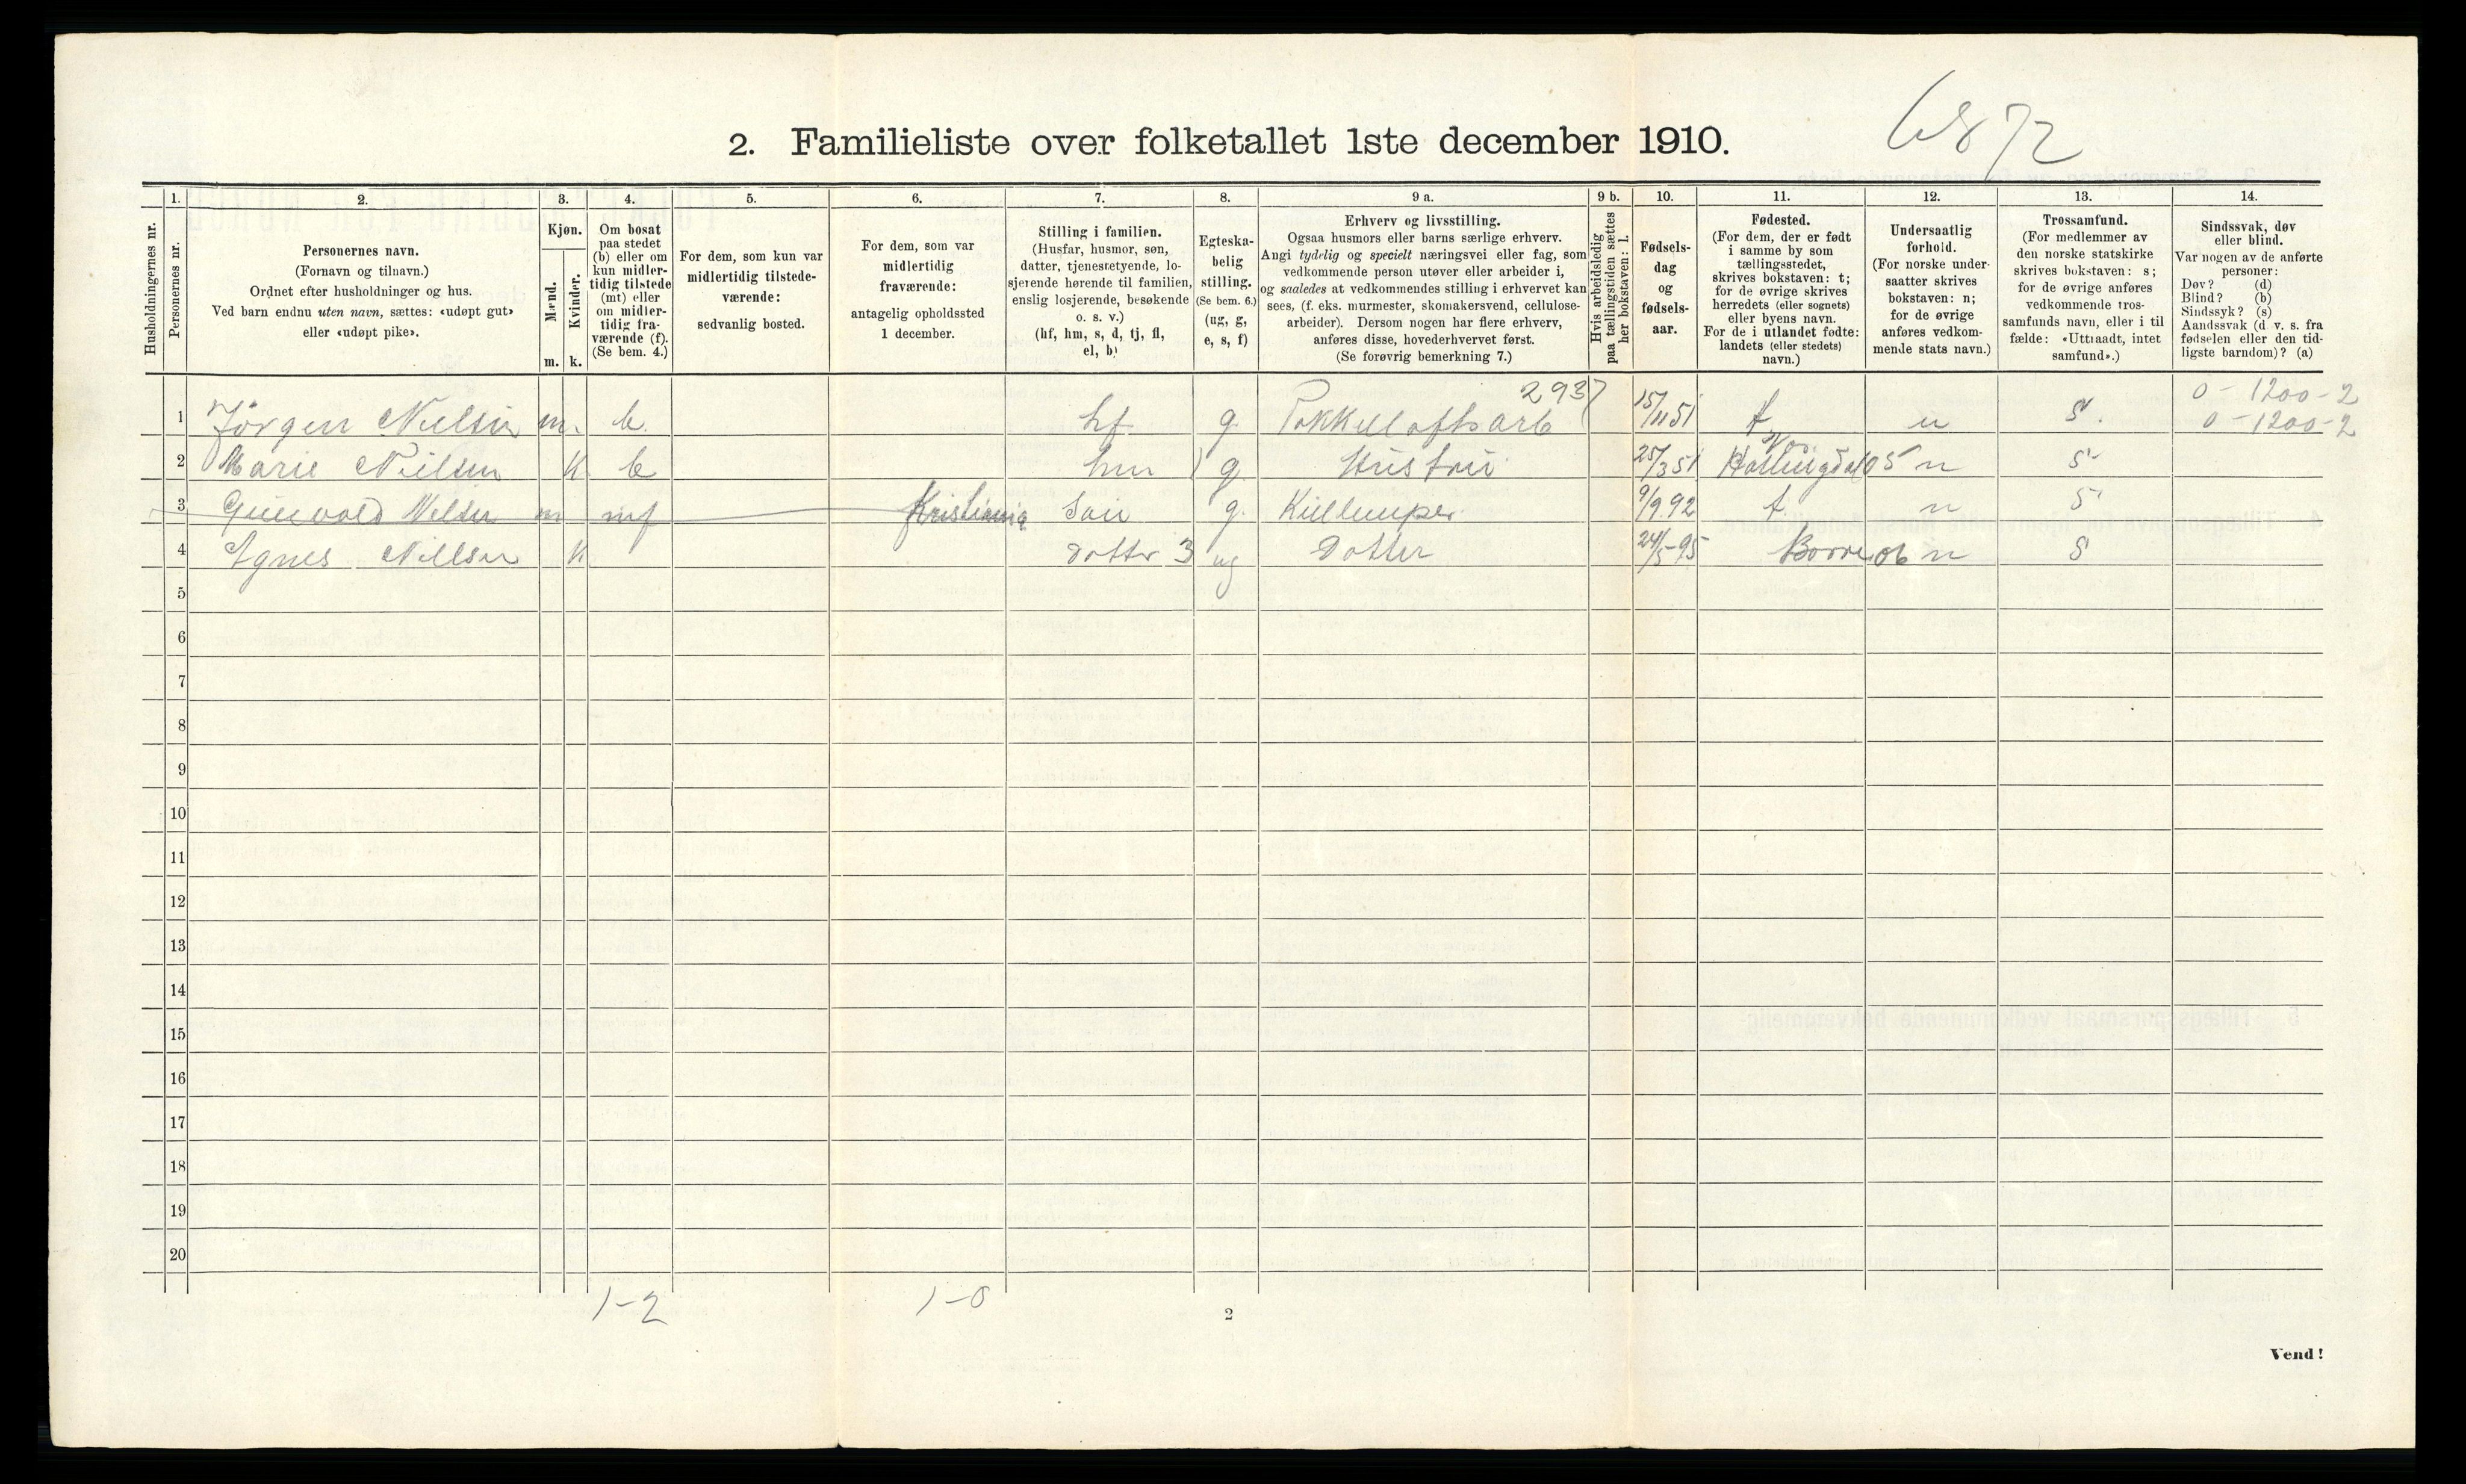 6872
2. Familieliste over folketallet 1ste december 1910.
Husholdningernes nr.
1. Personernes nr.
2. Personernes navn.
(Fornavn og tilnavn.)
Ordnet efter husholdninger og hus.
Ved barn endnu uten navn, sættes: «udøpt gut»
eller «udøpt pike».
3. Kjøn.
Mænd. m.
Kvinder. k.
4. Om bosat
paa stedet
(b) eller om
kun midler-
tidig tilstede
(mt) eller
om midler-
tidig fra-
værende (f).
(Se bem. 4.)
5. For dem, som kun var
midlertidig tilstede-
værende:
sedvanlig bosted.
6. For dem, som var
midlertidig
fraværende:
antagelig opholdssted
1 december.
7. Stilling i familien.
(Husfar, husmor, søn,
datter, tjenestetyende, lo-
sjerende hørende til familien,
enslig losjerende, besøkende
o. s. v.)
(hf, hm, s, d, tj, fl,
el, b)
8. Egteska-
belig
stilling.
(Se bem. 6.)
(ug, g,
e, s, f)
9 a. Erhverv og livsstilling.
Ogsaa husmors eller barns særlige erhverv.
Angi tydelig og specielt næringsvei eller fag, som
vedkommende person utøver eller arbeider i,
og saaledes at vedkommendes stilling i erhvervet kan
sees, (f. eks. murmester, skomakersvend, cellulose-
arbeider). Dersom nogen har flere erhverv,
anføres disse, hovederhvervet først.
(Se forøvrig bemerkning 7.)
9 b. Hvis arbeidsledig
paa tællingstiden sættes
her bokstaven: l.
10. Fødsels-
dag
og
fødsels-
aar.
11. Fødested.
(For dem, der er født
i samme by som
tællingsstedet,
skrives bokstaven: t;
for de øvrige skrives
herredets (eller sognets)
eller byens navn.
For de i utlandet fødte:
landets (eller stedets)
navn.)
12. Undersaatlig
forhold.
(For norske under-
saatter skrives
bokstaven: n;
for de øvrige
anføres vedkom-
mende stats navn.)
13. Trossamfund.
(For medlemmer av
den norske statskirke
skrives bokstaven: s;
for de øvrige anføres
vedkommende tros-
samfunds navn, eller i til
fælde: «Uttraadt, intet
samfund».)
14. Sindssvak, døv
eller blind.
Var nogen av de anførte
personer:
Døv? (d)
Blind? (b)
Sindssyk? (s)
Aandssvak (d v. s. fra
fødselen eller den tid-
ligste barndom)? (a)
2937 0-1200-2
1 Jörgen Nielsen m. b. hf g. 15/11 51 t n S. 0-1200-2
2 Marie Nielsen K b hm g. Hustru 25/3 51 Hallingdal 05 n S
3 Nilsen m mf Kristiania Sön g. 9/9.92 t n S
4 Agnes Nillsen K Dotter 3 ug Dotter 24/5-95 Borre 06 n S
5
6
7
8
9
10
11
12
13
14
15
16
17
18
19
20
1-2 1-0
2
Vend!